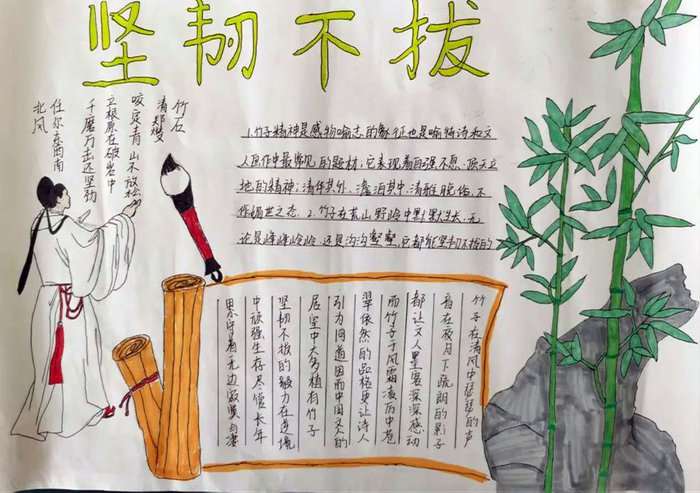 坚韧不拔
竹石
清郑燮
咬定青山不放松
立根原在破岩中
千磨万击还坚劲
任尔东西南
北风
1.竹子精神是感物喻志的象征也是咏物诗和文
人画作中最常见的题材;它表现着自强不息,顶天立
地的精神;清华其外,澹泊其中,清雅脱俗,不
作媚世之态。2.竹子在荒山野岭中默默生长,无
论是峰峰岭岭,还是沟沟壑壑,它都能坚韧不拔的
竹子在清风中瑟瑟的声
音在夜月下疏朗的影子
都让文人墨客深深感动
而竹子于风霜凌雨中苍
翠依然的品格更让诗人
引为同道因而中国文人的
居室中大多植有竹子
坚韧不拔的毅力在逆境
中顽强生存尽管长年
累月守着无边寂寞与凄